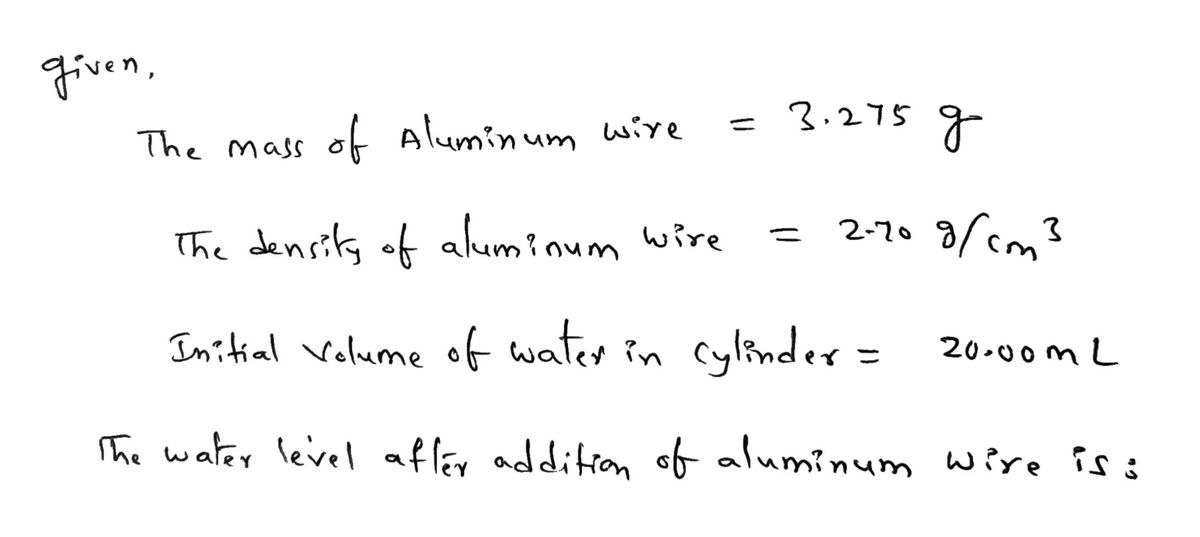 given,
The mass of Aluminum wire = 3.275 g
The density of aluminum wire = 2.70 g/cm³
Initial Volume of water in cylinder = 20.00 mL
The water level after addition of aluminum wire is :